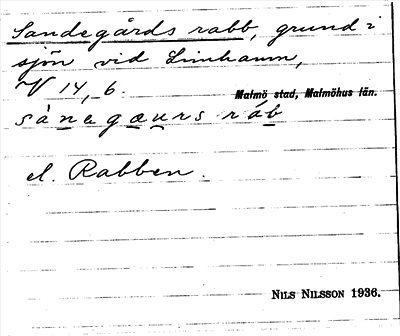 Sandegårds rabb, grund i
sjön vid Limhamn,
V 14, 6.
Malmö stad, Malmöhus län.
sànegæurs ráb
el. Rabben.
NILS NILSSON 1936.